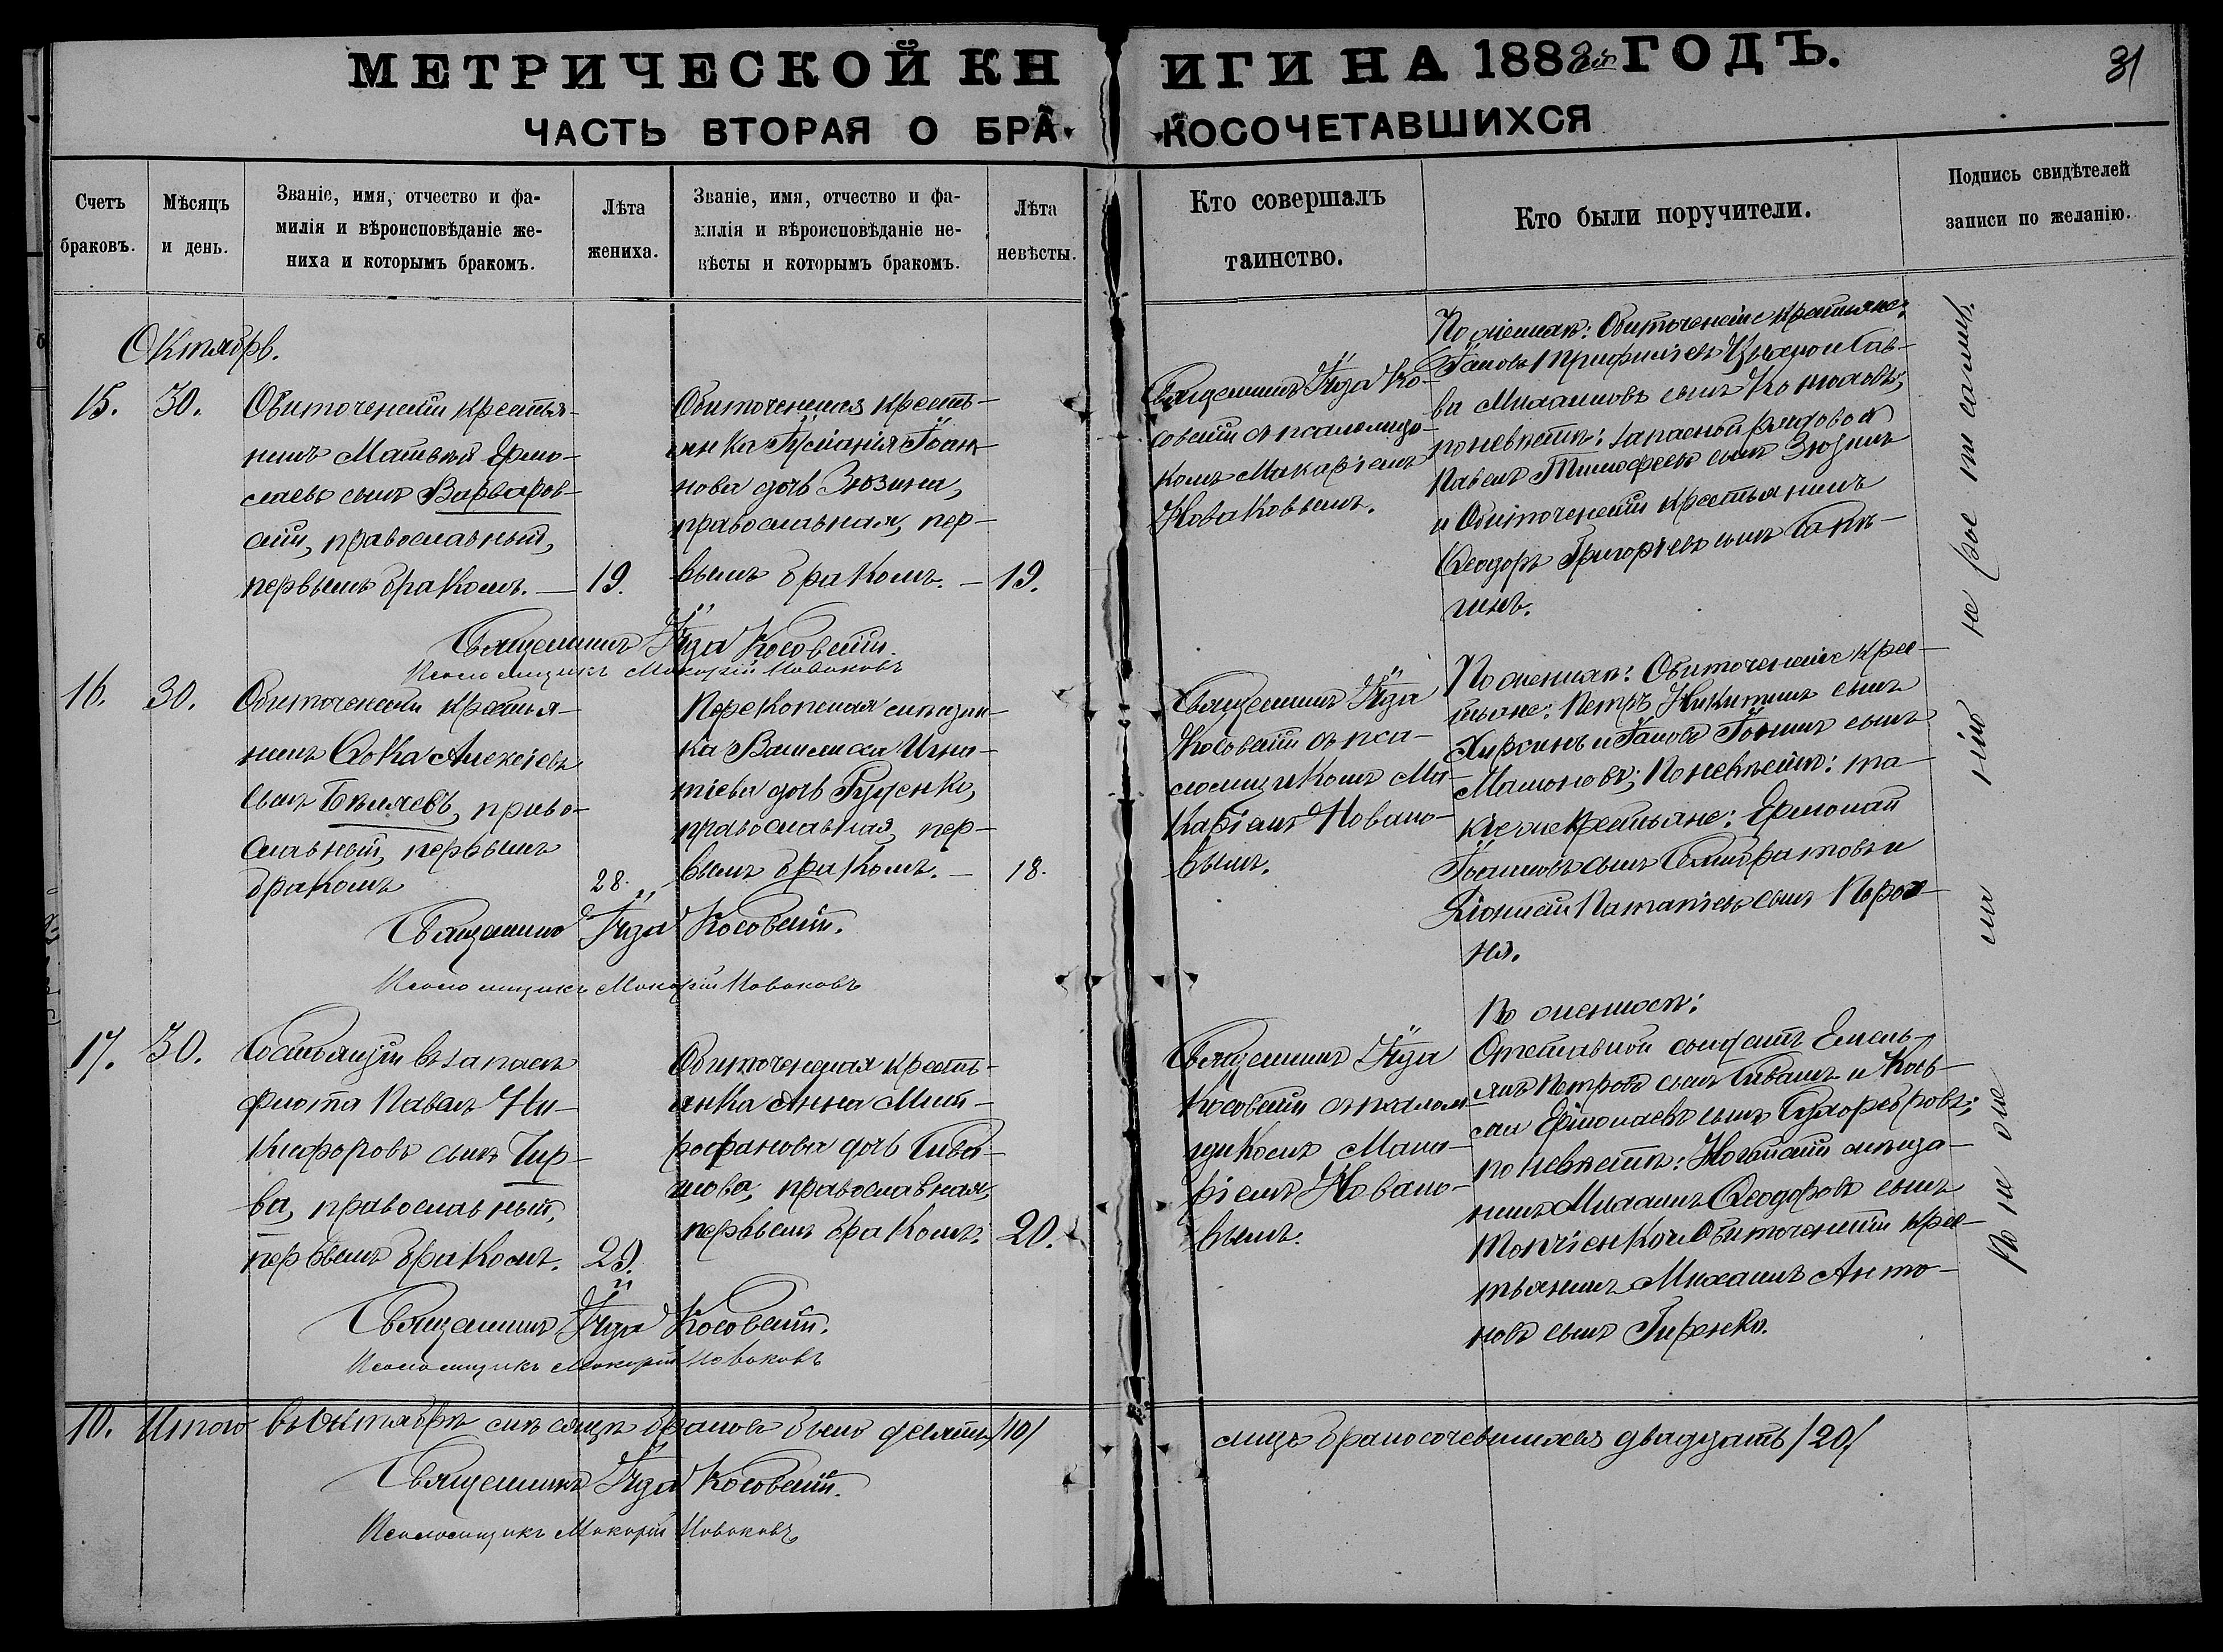 МЕТРИЧЕСКОЙ КНИГИ НА 1882й ГОДЪ.
31
ЧАСТЬ ВТОРАЯ О БРАКОСОЧЕТАВШИХСЯ
Счетъ браковъ.
Мѣсяцъ и день.
Званіе, имя, отчество и фа-
милія и вѣроисповѣданіе же-
ниха и которымъ бракомъ.
Лѣта
жениха.
Званіе, имя, отчество и фа-
милія и вѣроисповѣданіе не-
вѣсты и которымъ бракомъ.
Лѣта
невѣсты.
Кто совершалъ
таинство.
Кто были поручители.
Подпись свидѣтелей
записи по желанію.
Октябрь.
15. 30.
Обиточенскій крестья-
нинъ Матвѣй Ермо-
лаевъ сынъ Варваров-
скій, православный,
первымъ бракомъ. — 19.
Обиточенская кресть-
янка Іуліанія Іоан-
нова дочь Зюзина,
православная, пер-
вымъ бракомъ. — 19.
Священникъ Іуда Ко-
совскій съ псаломщи-
комъ Макаріемъ
Новаковымъ.
По женихѣ: Обиточенскіе крестьяне:
сынъ Коноваловъ;
по невѣстѣ: запасной рядовой
Павелъ Тимофеевъ сынъ Зюзинъ
и Обиточенскій крестьянинъ
Ѳеодоръ Григоріевъ сынъ Сапы-
чинъ.
Священникъ Іуда Косовскій.
Псаломщикъ Макарій Новаковъ
16. 30.
Обиточенскій крестья-
нинъ Ѳока Алексіевъ
сынъ Бѣляевъ, право-
славный, первымъ
бракомъ 28.
Перекопская мѣщан-
ка Василиса Игна-
тіева дочь Руденко,
православная, пер-
вымъ бракомъ. — 18.
Священникъ Іуда
Косовскій съ пса-
ломщикомъ Ма-
каріемъ Новако-
вымъ.
По женихѣ: Обиточенскіе крес-
тьяне: Петръ Никитинъ сынъ
Хирсинъ и Іаковъ Іонинъ сынъ
Мамоновъ; по невѣстѣ: та-
кіе же крестьяне: Ермолай
Іоанновъ сынъ
Діонисій сынъ
Священникъ Іуда Косовскій.
Псаломщикъ Макарій Новаковъ
17. 30.
Состоящій въ запасѣ
флота Павелъ Ни-
кифоровъ сынъ Чир-
ва, православный,
первымъ бракомъ. 29.
Обиточенская кресть-
янка Анна Мит-
рофанова дочь Сива-
шова, православная,
первымъ бракомъ. 20.
Священникъ Іуда
Косовскій съ псалом-
щикомъ Мака-
ріемъ Новако-
вымъ.
По женихѣ:
Отставной солдатъ Емель-
янъ Петровъ сынъ Сивашъ и
Ермолаевъ сынъ
по невѣстѣ: Ногайскій мѣща-
нинъ Михаилъ Ѳеодоровъ сынъ
Топчіенко и Обиточенскій крес-
тьянинъ Михаилъ Анто-
новъ сынъ Гиренко.
Священникъ Іуда Косовскій.
Псаломщикъ Макарій Новаковъ
10. Итого въ Октябрѣ мѣсяцѣ браковъ было десять /10/
лицъ бракосочетавшихся двадцать /20/
Священникъ Іуда Косовскій.
Псаломщикъ Макарій Новаковъ